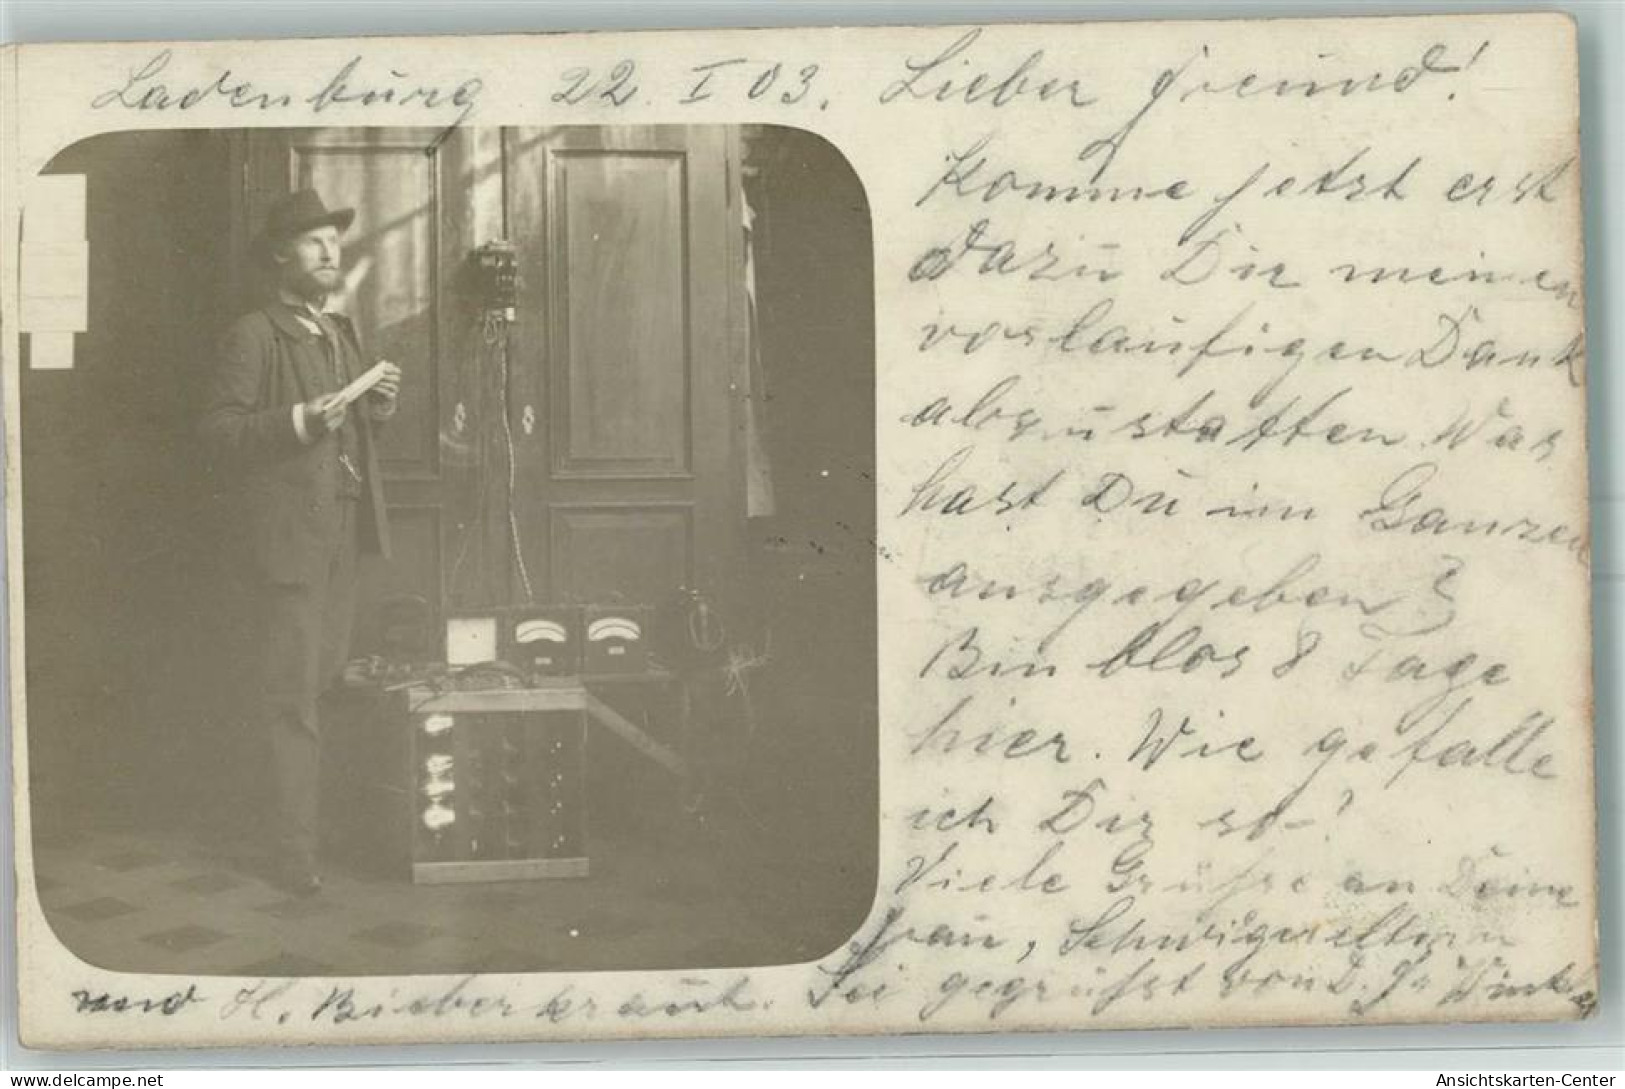 Ladenburg 22. I 03. Lieber Freund!
Komme jetzt erst
dazu Dir meinen
vorläufigen Dank
abzustatten. Was
hast Du im Ganzen
ausgegeben?
Bin blos 8 Tage
hier. Wie gefalle
ich Dir so-?
Viele Grüße an Deine
Frau, Schwiegereltern
und H. Bieberkraut. Sei gegrüßt von D. Fr
Ansichtskarten-Center